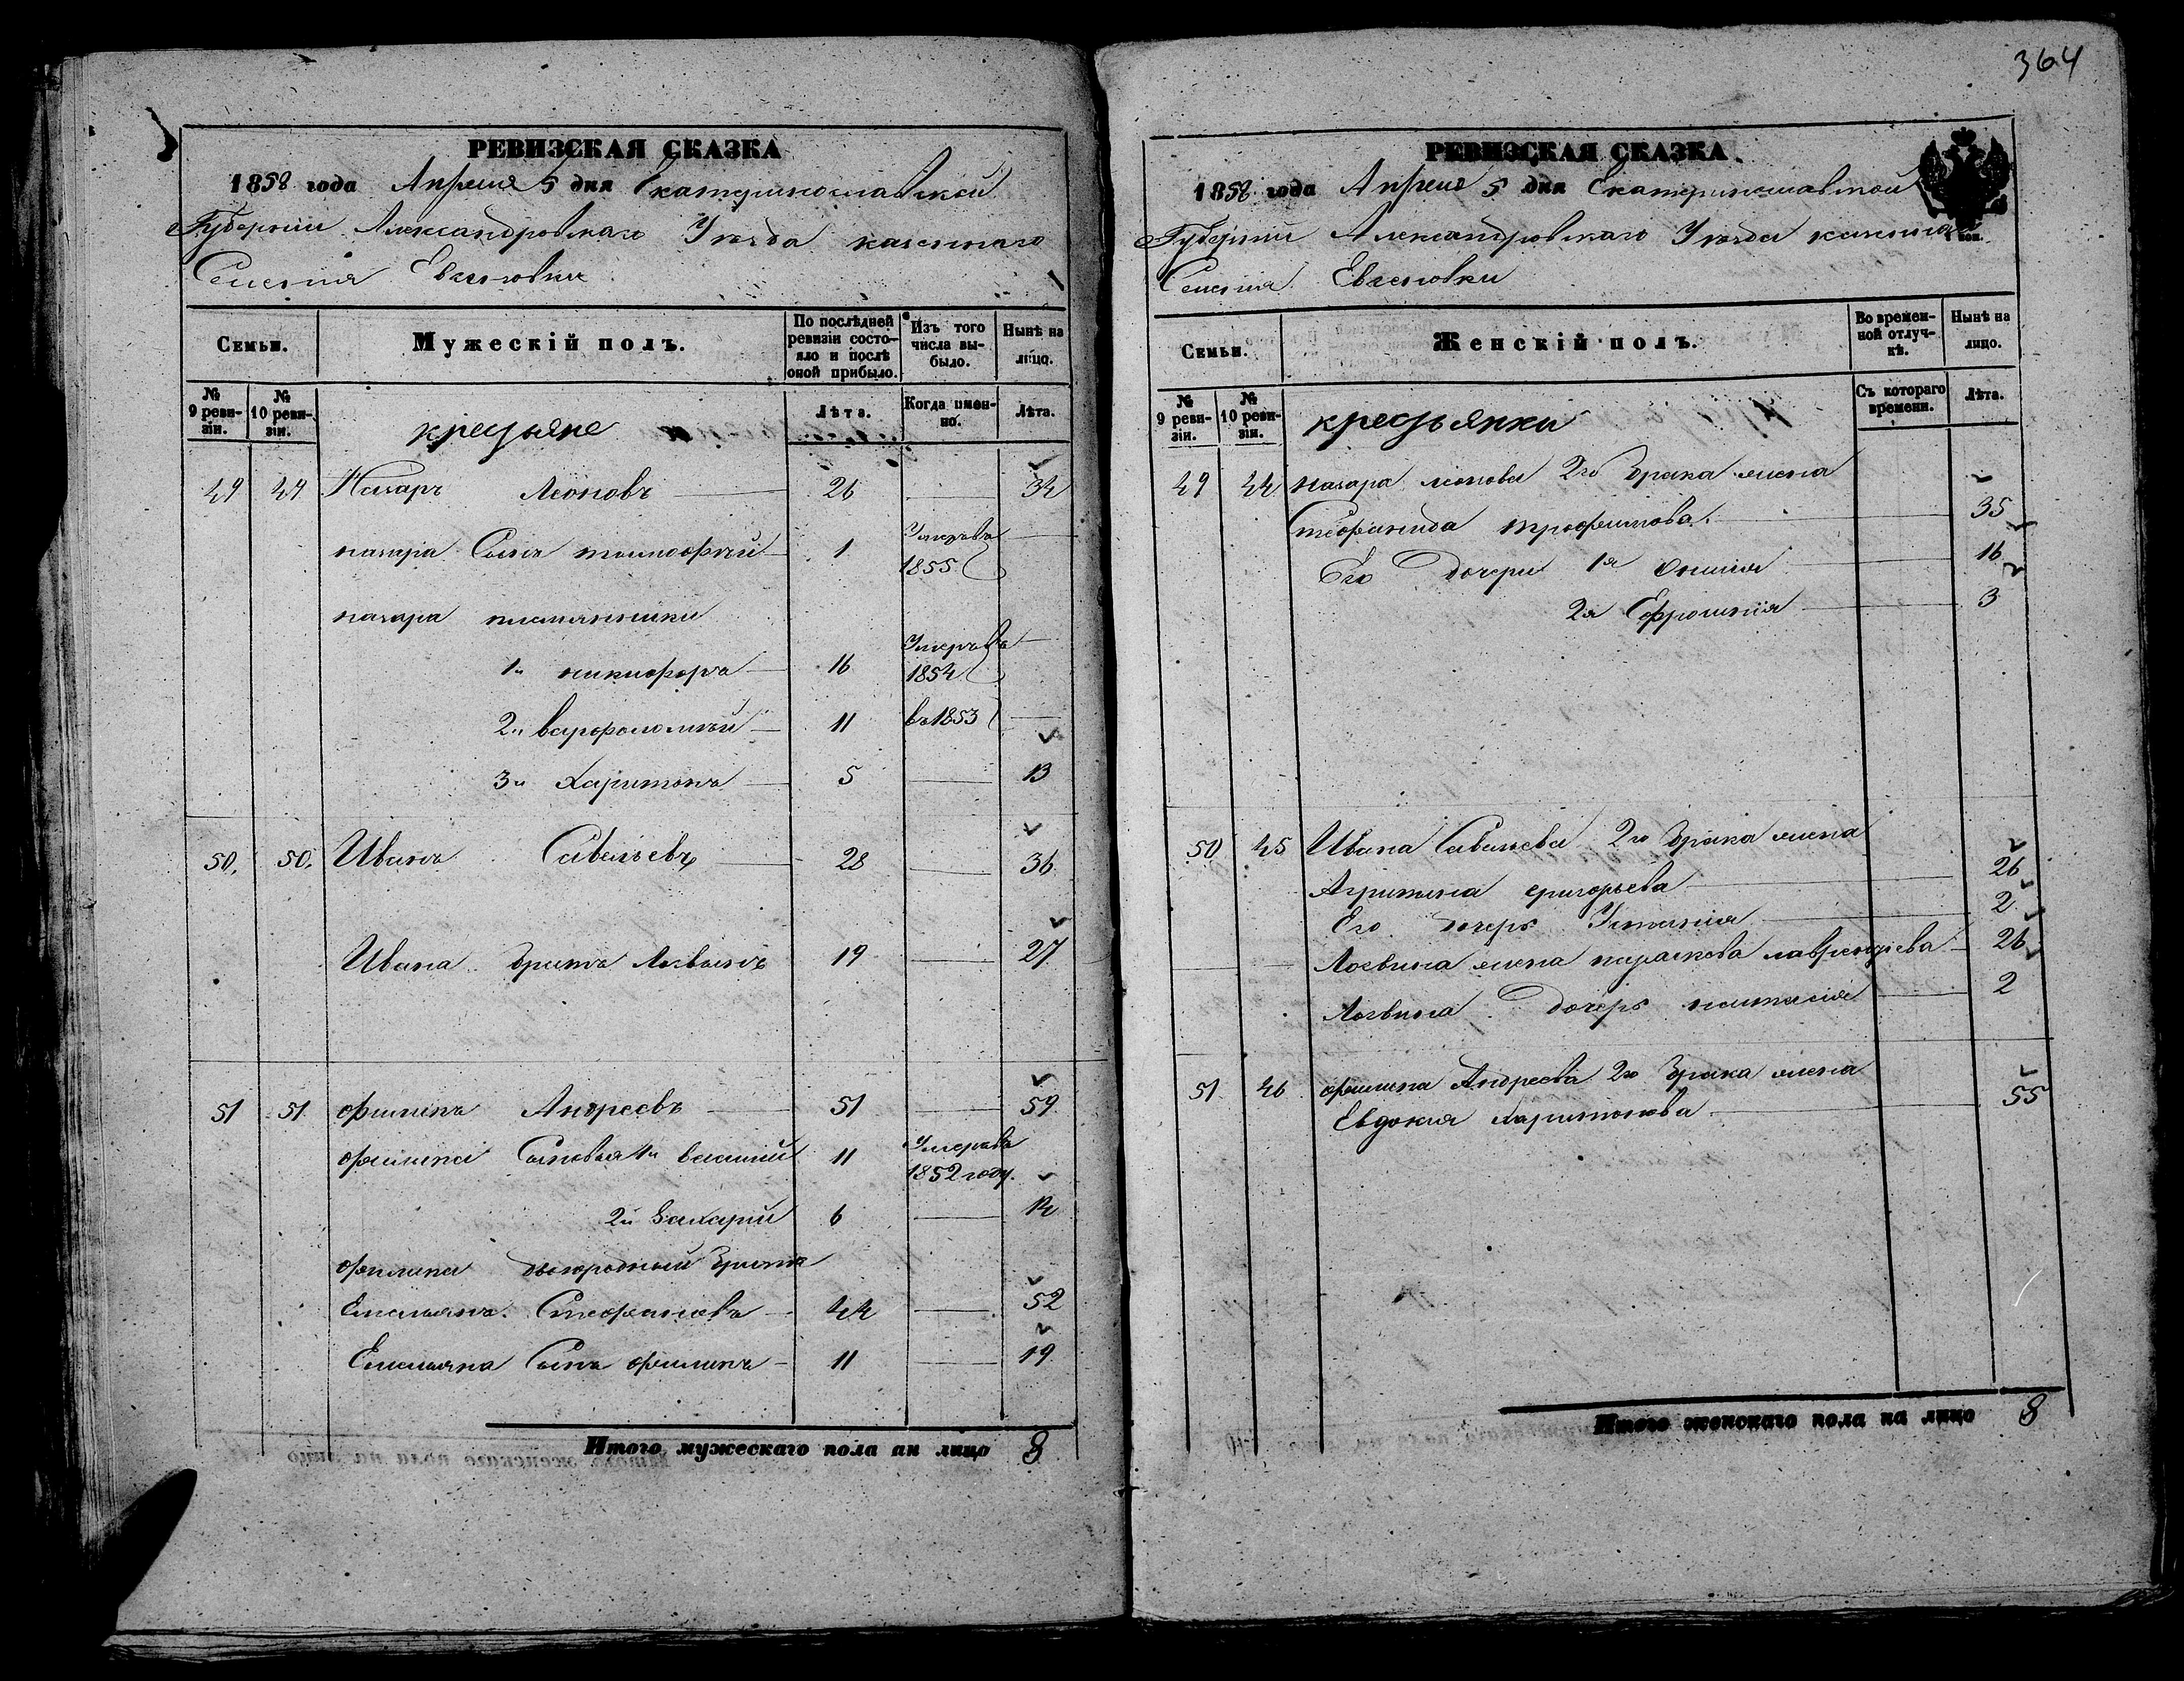 364
РЕВИЗСКАЯ СКАЗКА
1858 года Апреля 5 дня Екатеринославской
Губернии Александровскаго Уезда казеннаго
Селения
Семьи.
Мужескій полъ.
По послѣдней ревизіи состояло и послѣ оной прибыло.
Изъ того числа выбыло.
Нынѣ на лицо.
№ 9 ревизіи.
№ 10 ревизіи.
крестьяне
Лѣта.
Когда именно.
Лѣта.
49 44 Назаръ Леоновъ 26 34
назара Сынъ тимофѣй 1 Умеръ въ 1855
назара племянники
1й никифоръ 16 Умеръ въ 1854
2й варфоломѣй 11 въ 1853
3й Харитонъ 5 13
50. 50. Иванъ Савельевъ 28 36
Ивана братъ Логвинъ 19 27
51 51 филипъ Андреевъ 51 59
филипа Сыновья 1й василий 11 Умеръ въ 1852 году.
2й Захарий 6 14
филипа двоюродный братъ
Емельянъ Стефановъ 44 52
Емельяна Сынъ филипъ 11 19
Итого мужескаго пола ан лицо 8
РЕВИЗСКАЯ СКАЗКА
1858 года Апреля 5 дня Екатеринославской
Губернии Александровскаго Уезда казеннаго
Селения
Семьи.
Женскій полъ.
Во временной отлучкѣ.
Нынѣ на лицо.
№ 9 ревизіи.
№ 10 ревизіи.
крестьянки
Съ котораго времени.
Лѣта.
49 44 назара леонова 2го брака жена
Стефанида трофимова 35
Его дочери 1я 16
2я Ефросинія 3
50 45 Ивана Савельева 2го брака жена
Агрипина григорьева 26
Его дочерь Устинія 2
Логвина жена параскева лаврентіева 26
Логвина дочерь настасія 2
51 46 филипа Андреева 2го брака жена
Евдокия харитонова 55
Итого женскаго пола на лицо 8